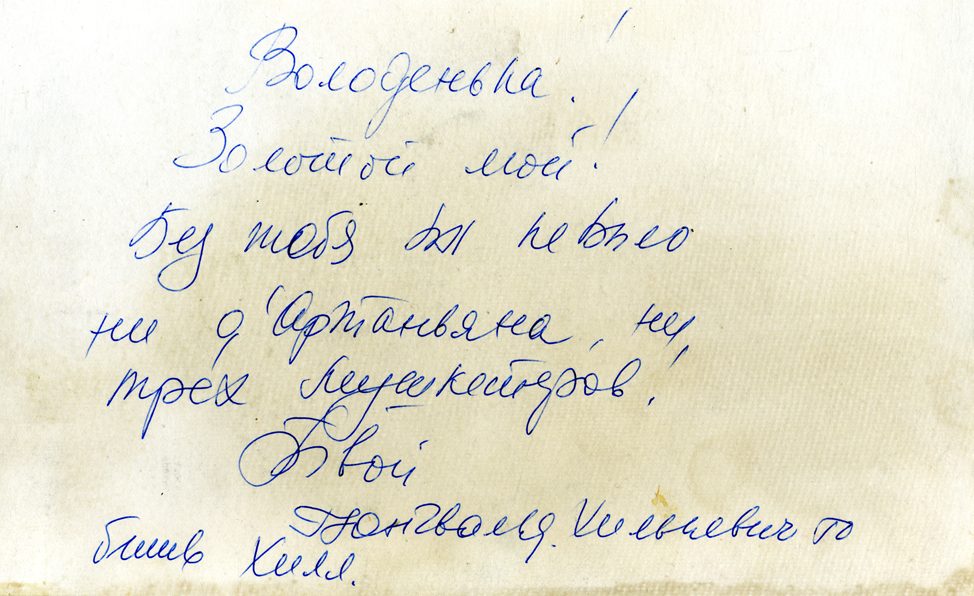 Володенька!
Золотой мой!
Без тебя бы не было
ни д'Артаньяна, ни
трёх мушкетёров!
Твой
Юнгвальд. Хилькевич
Хилл.